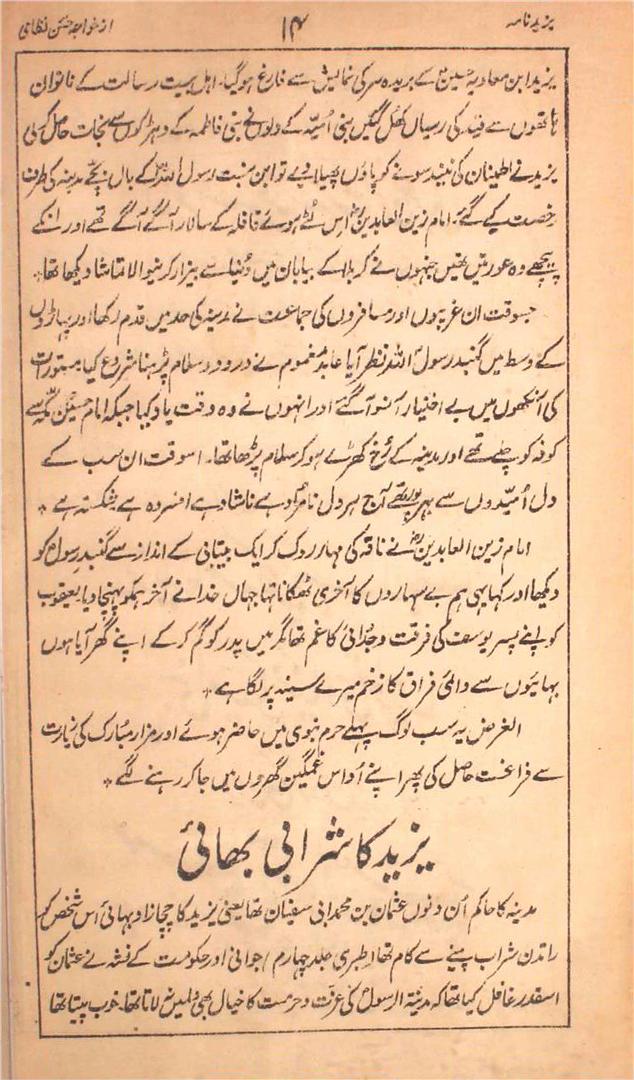 یزید نامہ ۱۴ از خواجہ حسن نظامی
یزید ابن معاویہ حسینؑ کے بریدہ سر کی نمایش سے فارغ ہو گیا۔ اہل بیت رسالت کے ناتوان
ہاتھوں سے قید کی رسیاں کھل گئیں بنی اُمیّہ کے دلوں نے بنی فاطمہ کے دھڑکوں سے نجات حاصل کر لی
یزید نے اطینان کی نیند سونے کو پاؤں پھیلا دیے تو ابن بنت رسول اللہؐ کے بال بچے مدینہ کی طرف
رخصت کیے گئے۔ امام زین العابدینؓ اس لُٹے ہوئے قافلہ کے سالار آگے آگے تھے اور انکے
پیچھے وہ عورتیں تھیں جنہوں نے کربلا کے بیابان میں دُنیا سے بیزار کرنیوالا تماشا دیکھا تھا٭
جسوقت ان غریبوں اور مسافروں کی جماعت نے مدینہ کی حد میں قدم رکھا اور پہاڑوں
کے وسط میں گنبد رسولؐ اللہ نظر آیا عابد مغموم نے درود و سلام پڑہنا شروع کیا۔ مستورات
کی آنکھوں میں بے اختیار آنسو آگئے اور انہوں نے وہ وقت یاد کیا جبکہ امام حسینؓ مکّہ سے
کوفہ کو چلے تھے اور مدینہ کے رُخ کھڑے ہو کر سلام پڑھا تھا۔ اسوقت ان سب کے
دل اُمیّدوں سے بھرپور تھے آج ہر دل نامراد ہے ناشاد ہے افسردہ ہے شکستہ ہے ٭
امام زین العابدینؓ نے ناقہ کی مہار روک کر ایک بیتابی کے انداز سے گنبد رسولؐ کو
دیکھا اور کہا یہی ہم بے سہاروں کا آخری ٹھکانا تھا جہاں خدا نے آخر ہمکو پہنچا دیا۔ یعقوب
کو اپنے پسر یوسف کی فرقت و جدُائی کا غم تھا مگر میں پدر کو گم کر کے اپنے گھر آیا ہوں
بہائیوں سے دائمی فراق کا زخم میرے سینہ پر لگا ہے٭
الغرض یہ سب لوگ پہلے حرم نبوی میں حاضر ہوئے اور مزار مبُارک کی زیارت
سے فراغت حاصل کی پھر اپنے اُداس غمگین گھروں میں جا کر رہنے لگے٭
یزید کا شرابی بھائی
مدینہ کا حاکم اُن دنوں عثمان بن محمد ابی سفیان تھا یعنی یزید کا چچا زاد بہائی اس شخص کو
راتدن شراب پینے سے کام تھا (طبری جلد چہارم) جوانی اور حکومت کے نشہ نے عثمان کو
اسقدر غافل کیا تھا کہ مدینۃ الرسولؐ کی عزت و حرمت کا خیال بھی دلمیں نہ لاتا تھا۔ خوب پیتا تھا